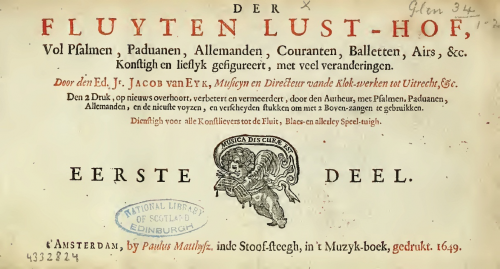 DER
FLUYTEN LUST-HOF,
Vol Psalmen, Paduanen, Allemanden, Couranten, Balletten, Airs, &c.
Konstigh en lieflyk gefigureert, met veel veranderingen.
Door den Ed. Jr. JACOB van EYK, Musicyn en Directeur vande Klok-werken tot Uitrecht, &c.
Den 2 Druk, op nieuws overhoort, verbetert en vermeerdert, door den Autheur, met Psalmen, Paduanen,
Allemanden, en de nieuste voyzen, en verscheyden stukken om met 2 Boven-zangen te gebruikken.
Dienstigh voor alle Konstlievers tot de Fluit, Blaes- en allerley Speel-tuigh.
MUSICA DIS CURÆ EST
EERSTE DEEL.
NATIONAL LIBRARY
OF SCOTLAND
EDINBURGH
t'AMSTERDAM, by Paulus Matthysz. inde Stoof-steegh, in 't Muzyk-boek, gedrukt. 1649.
Glen 34
4332824